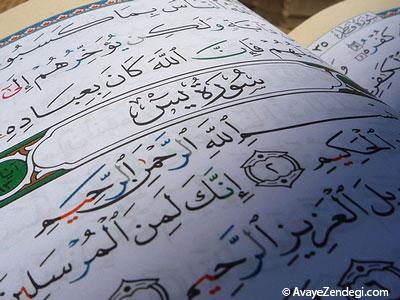 النَّاسَ بِمَا كَسَبُوا
وَلَٰكِن يُؤَخِّرُهُمْ إِلَىٰ
فَإِنَّ اللَّهَ كَانَ بِعِبَادِهِ
سُورَةُ يس
اللَّهِ الرَّحْمَٰنِ الرَّحِيمِ
الْحَكِيمِ ٢ إِنَّكَ لَمِنَ الْمُرْسَلِينَ
الْعَزِيزِ الرَّحِيمِ
© AvayeZendegi.com